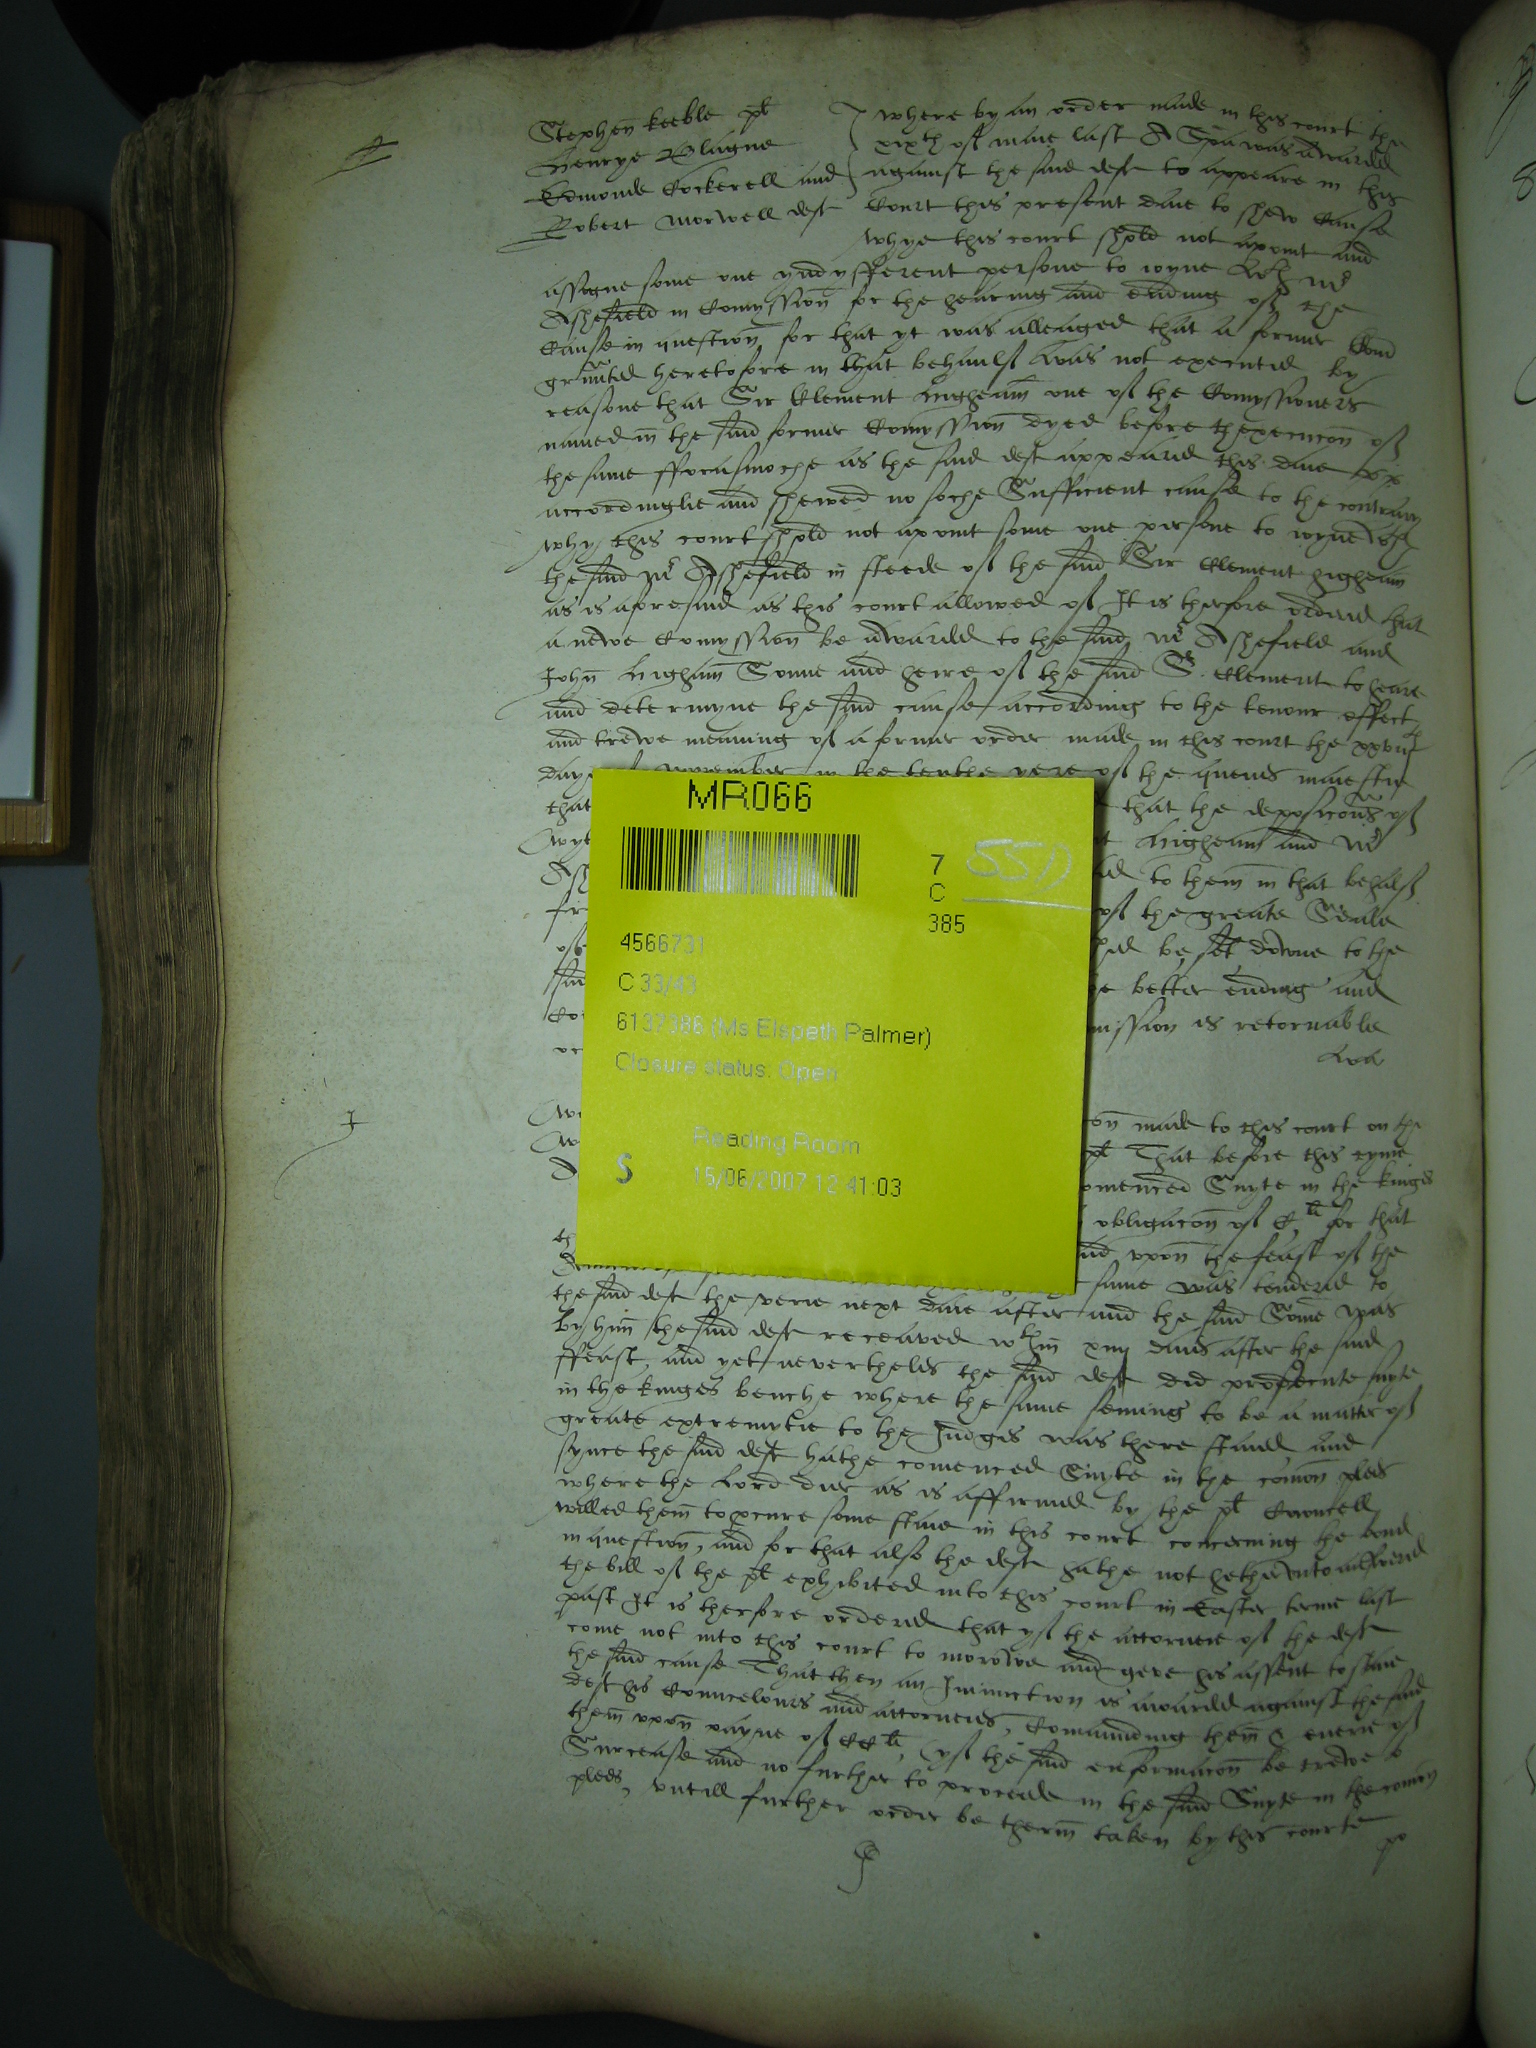 Stephen Keeble pl
Henrye Blagne
Edmonde Cockerell and
Robert Morwell deft
where by an order made in this court the
xixth of maie last A Spa was awarded
against the said deft to appeare in this
Court this present daie to shew Cause
whye this court shold not apoint and
assigne some one yndyfferent persone to ioyne wth mr
Ashefield in Comyssion for the hearing and ending of the
Cause in question for that yt was alleaged that a former
graunted heretofore in that behaulf was not executed by
reasone that Sir Clement Higheam one of the Comyssioners
named in the said former Comyssion dyed before thexecucon of
the same fforasmoche as the said deft appeared this daie
accordinglie and shewed no soche Sufficient cause to the contrary
why this court shold not apoint some one persone to ioyne wth
the said mr Ashefield in steede of the said Sir Clement higheam
as is aforesaid as this court allowed of It is therfore ordered that
a newe Comyssion be awarded to the said mr Ashefield and
John Higham Sonne and heire of the said Sr Clement to heare
and determyne the said cause according to the tenour effect
and trewe meaning of a former order made in this court the xxviijth
daye of november in the tenthe yere of the quenes maiestie
that that the deposicons of
Higheam and mr
to them in that behalf
of the greate Seale
be set downe to the
better ending and
is retornable
MR066
7
C
385
551
4566731
C 33/43
6137386 (Ms Elspeth Palmer)
Closure status: Open
Reading Room
S
15/06/2007 12:41:03
made to this court on the
pl That before this tyme
comenced Suyte in the kinges
obligacon of for that
and upon the feast of the
same was tendered to
the said deft the verie next daie after and the said Some was
by him the said deft receaved wthin xiiij daies after the said
ffeast, and yet nevertheles the said deft did prosecute suyte
in the kinges benche where the same seming to be a matter of
greate extremytie to the Judges was there staied and
synce the said deft hathe comenced Suyte in the comon plees
where the Lord dier as is affirmed by the pl Councell
willed them to pcure some staie in this court concerning the bond
in question, and for that also the deft hathe not hetherunto aunswered
the bill of the pl exhibited into this court in Easter terme last
past It is therfore ordered that yf the attorneie of the deft
come not into this court to morowe and geve his assent to staie
the said cause That then an Iniunction is awarded against the said
deft his Councelours and attorneis, Comaunding them & everie of
them upon payne of CCli, (yf the said enformacon be trewe)
Surcease and no further to proceede in the said Suyte in the comon
plees, untill further order be therin taken by this courte